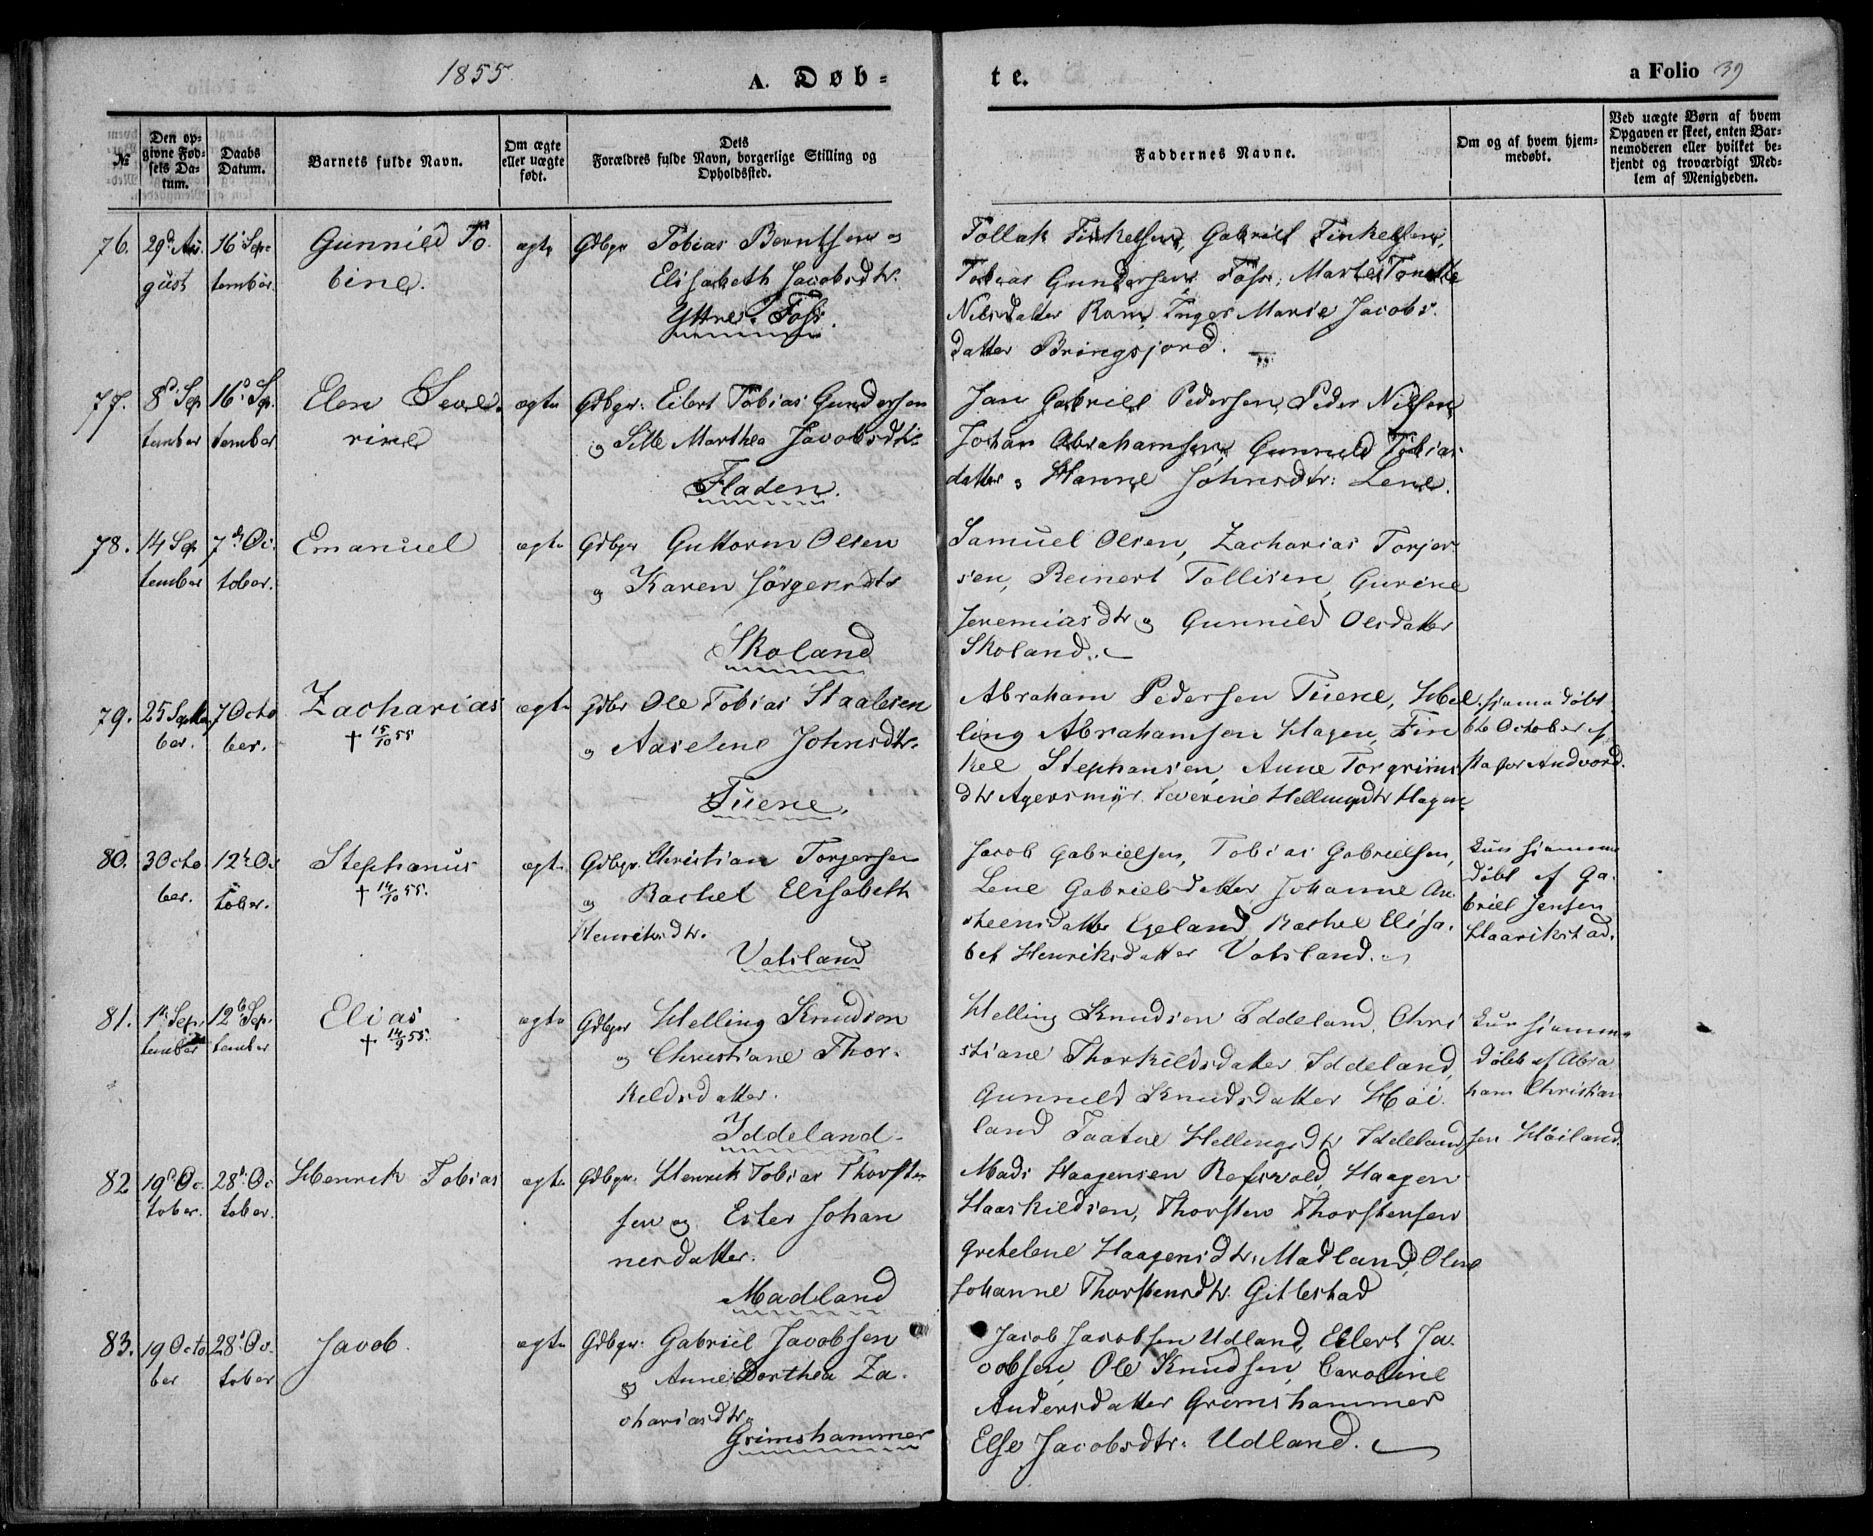 1855 A. Døb=
te. a Folio 39
№
Den op=
givne Fød=
sels Da=
tum.
Daabs
Datum.
Barnets fulde Navn.
Om ægte
eller uægte
født.
Dets
Forældres fulde Navn, borgerlige Stilling og
Opholdssted.
Faddernes Navne.
Om og af hvem hjem=
medøbt.
Ved uægte Børn af hvem
Opgaven er skeet, enten Bar=
nemoderen eller hvilket be=
kjendt og troværdigt Med=
lem af Menigheden.
76. 29d Au
gust
16 Sep
tember
Gunnild To
bine.
ægte
Gdbgr Tobias Berntsen og
Elisabeth Jacobsdtr.
Yttre Foss.
Tollak Finkelsen, Gabriel Finkelsen,
Tobias Gundersen Foss, Marte Tonette
Nilsdatter Ram, Inger Marie Jacobs
datter Bringsjord.
77. 8d Sep
tember
16 Sep
tember
Elen Seve
rine
ægte
Gdbgr. Eilert Tobias Gundersen
og Sille Marthea Jacobsdtr
Fladen.
Jan Gabriel Pedersen, Peder Nilsen
Johan Abrahamsen, Gunnild Tobias
datter og Hanne Johnsdtr: Lene.
78. 14 Sep
tember
7d Oc
tober.
Emanuel
ægte
Gdbgr Guttorm Olsen
og Karen Jörgensdtr
Skoland
Samuel Olsen, Zacharias Torjer
sen, Reinert Tollisen, Gurine
Jeremiasdtr og Gunnild Olsdatter
Skoland.
79. 25 Septem
ber.
7 Octo
ber.
Zacharias
† 15/10 55
ægte
Gdbr Ole Tobias Staalesen
og Aaselene Johnsdtr.
Tuene,
Abraham Pedersen Tuene, Hel
ling Abrahamsen Hagen, Fin
kel Stephansen, Anne Torgrims
dtr Agersmyr. Severine Hellingsdtr Hagen,
hjemmedøbt
6te October af
Pastor Andvord.
80. 3 Octo
ber.
12t Oc
tober.
Stephanus
† 14/10 55.
ægte
Gdbgr. Christian Torjersen
og Rachel Elisabeth
Henriksdtr.
Vatsland
Jacob Gabrielsen, Tobias Gabrielsen,
Lene Gabrielsdatter, Johanne An
steensdatter Egeland, Rachel Elisa
bet Henriksdatter Vatsland.
Kun hjemme
døbt af Ga
briel Jensen
Haarikstad.
81. 1t Sep.
tember
12t Sep.
tember
Elias
† 14/9 55.
ægte
Gdbgr Helling Knudsen
og Christiane Thor
kildsdatter.
Iddeland.
Helling Knudsen Iddeland, Chri
stiane Thorkildsdatter Iddeland,
Gunnild Knudsdatter Høi
land Taatne Hellingsdtr Iddeland
Kun hjemme
døbt af Abra
ham Christian
sen Høiland.
82 19d Oc
tober.
28t Oc
tober.
Henrik Tobias
ægte
Gdbgr. Henrik Tobias Thorsten
sen og Ester Johan
nesdatter.
Madland
Mads Haagensen Refsvold, Haagen
Haaskildsen, Thorsten Thorstensen
Grethelene Haagensdtr. Madland, Olene
Johanne Thorstensdtr Gitlestad
83. 19 Octo
ber
28t Oc
tober
Jacob.
ægte
Gdbgr. Gabriel Jacobsen
og Anne Dorthea Za
chariasdtr
Grimshammer
Jacob Jacobsen Udland, Eilert Ja
cobsen, Ole Knudsen, Caroline
Andersdatter Grimshammer
Else Jacobsdtr. Udland.